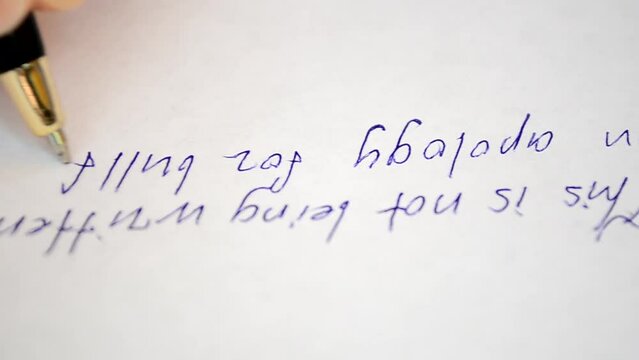 This is not being written
n apology for bullf